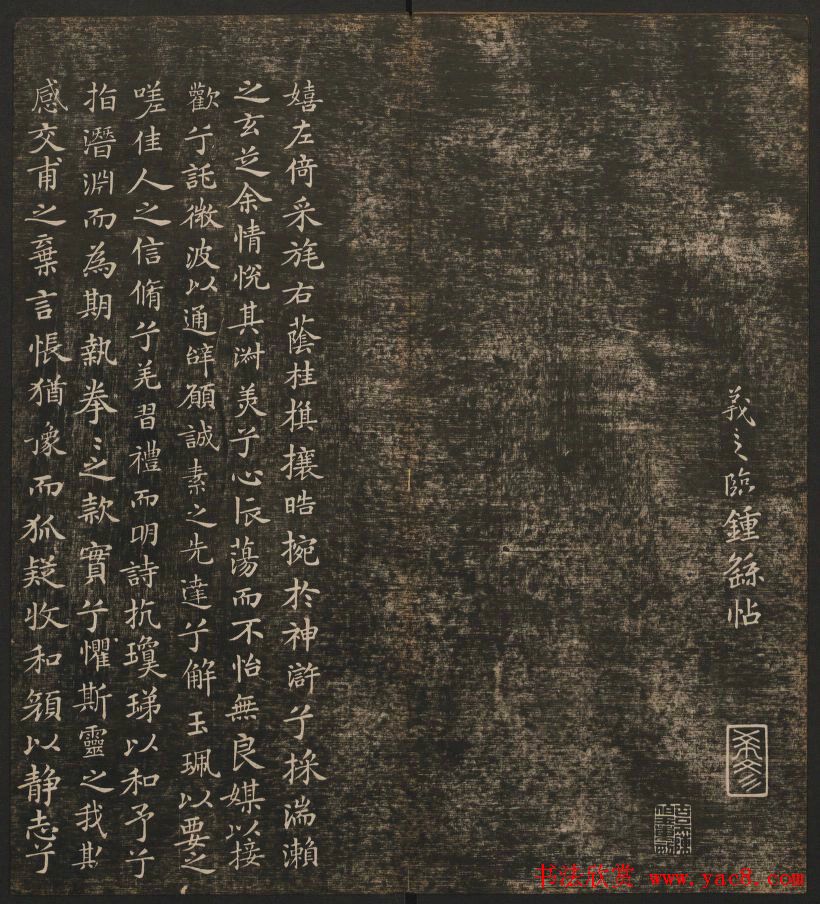 羲之臨鍾繇帖
嬉左倚采旄右蔭桂旗攘皓捥於神滸兮採湍瀨
之玄芝余情悅其淑美兮心振蕩而不怡無良媒以接
歡兮託微波以通辭願誠素之先達兮解玉珮以要之
嗟佳人之信脩兮羌習禮而明詩抗瓊珶以和予兮
指潛淵而為期執拳〻之款實兮懼斯靈之我欺
感交甫之棄言悵猶豫而狐疑收和顏以静志兮
书法欣赏 www.yac8.com